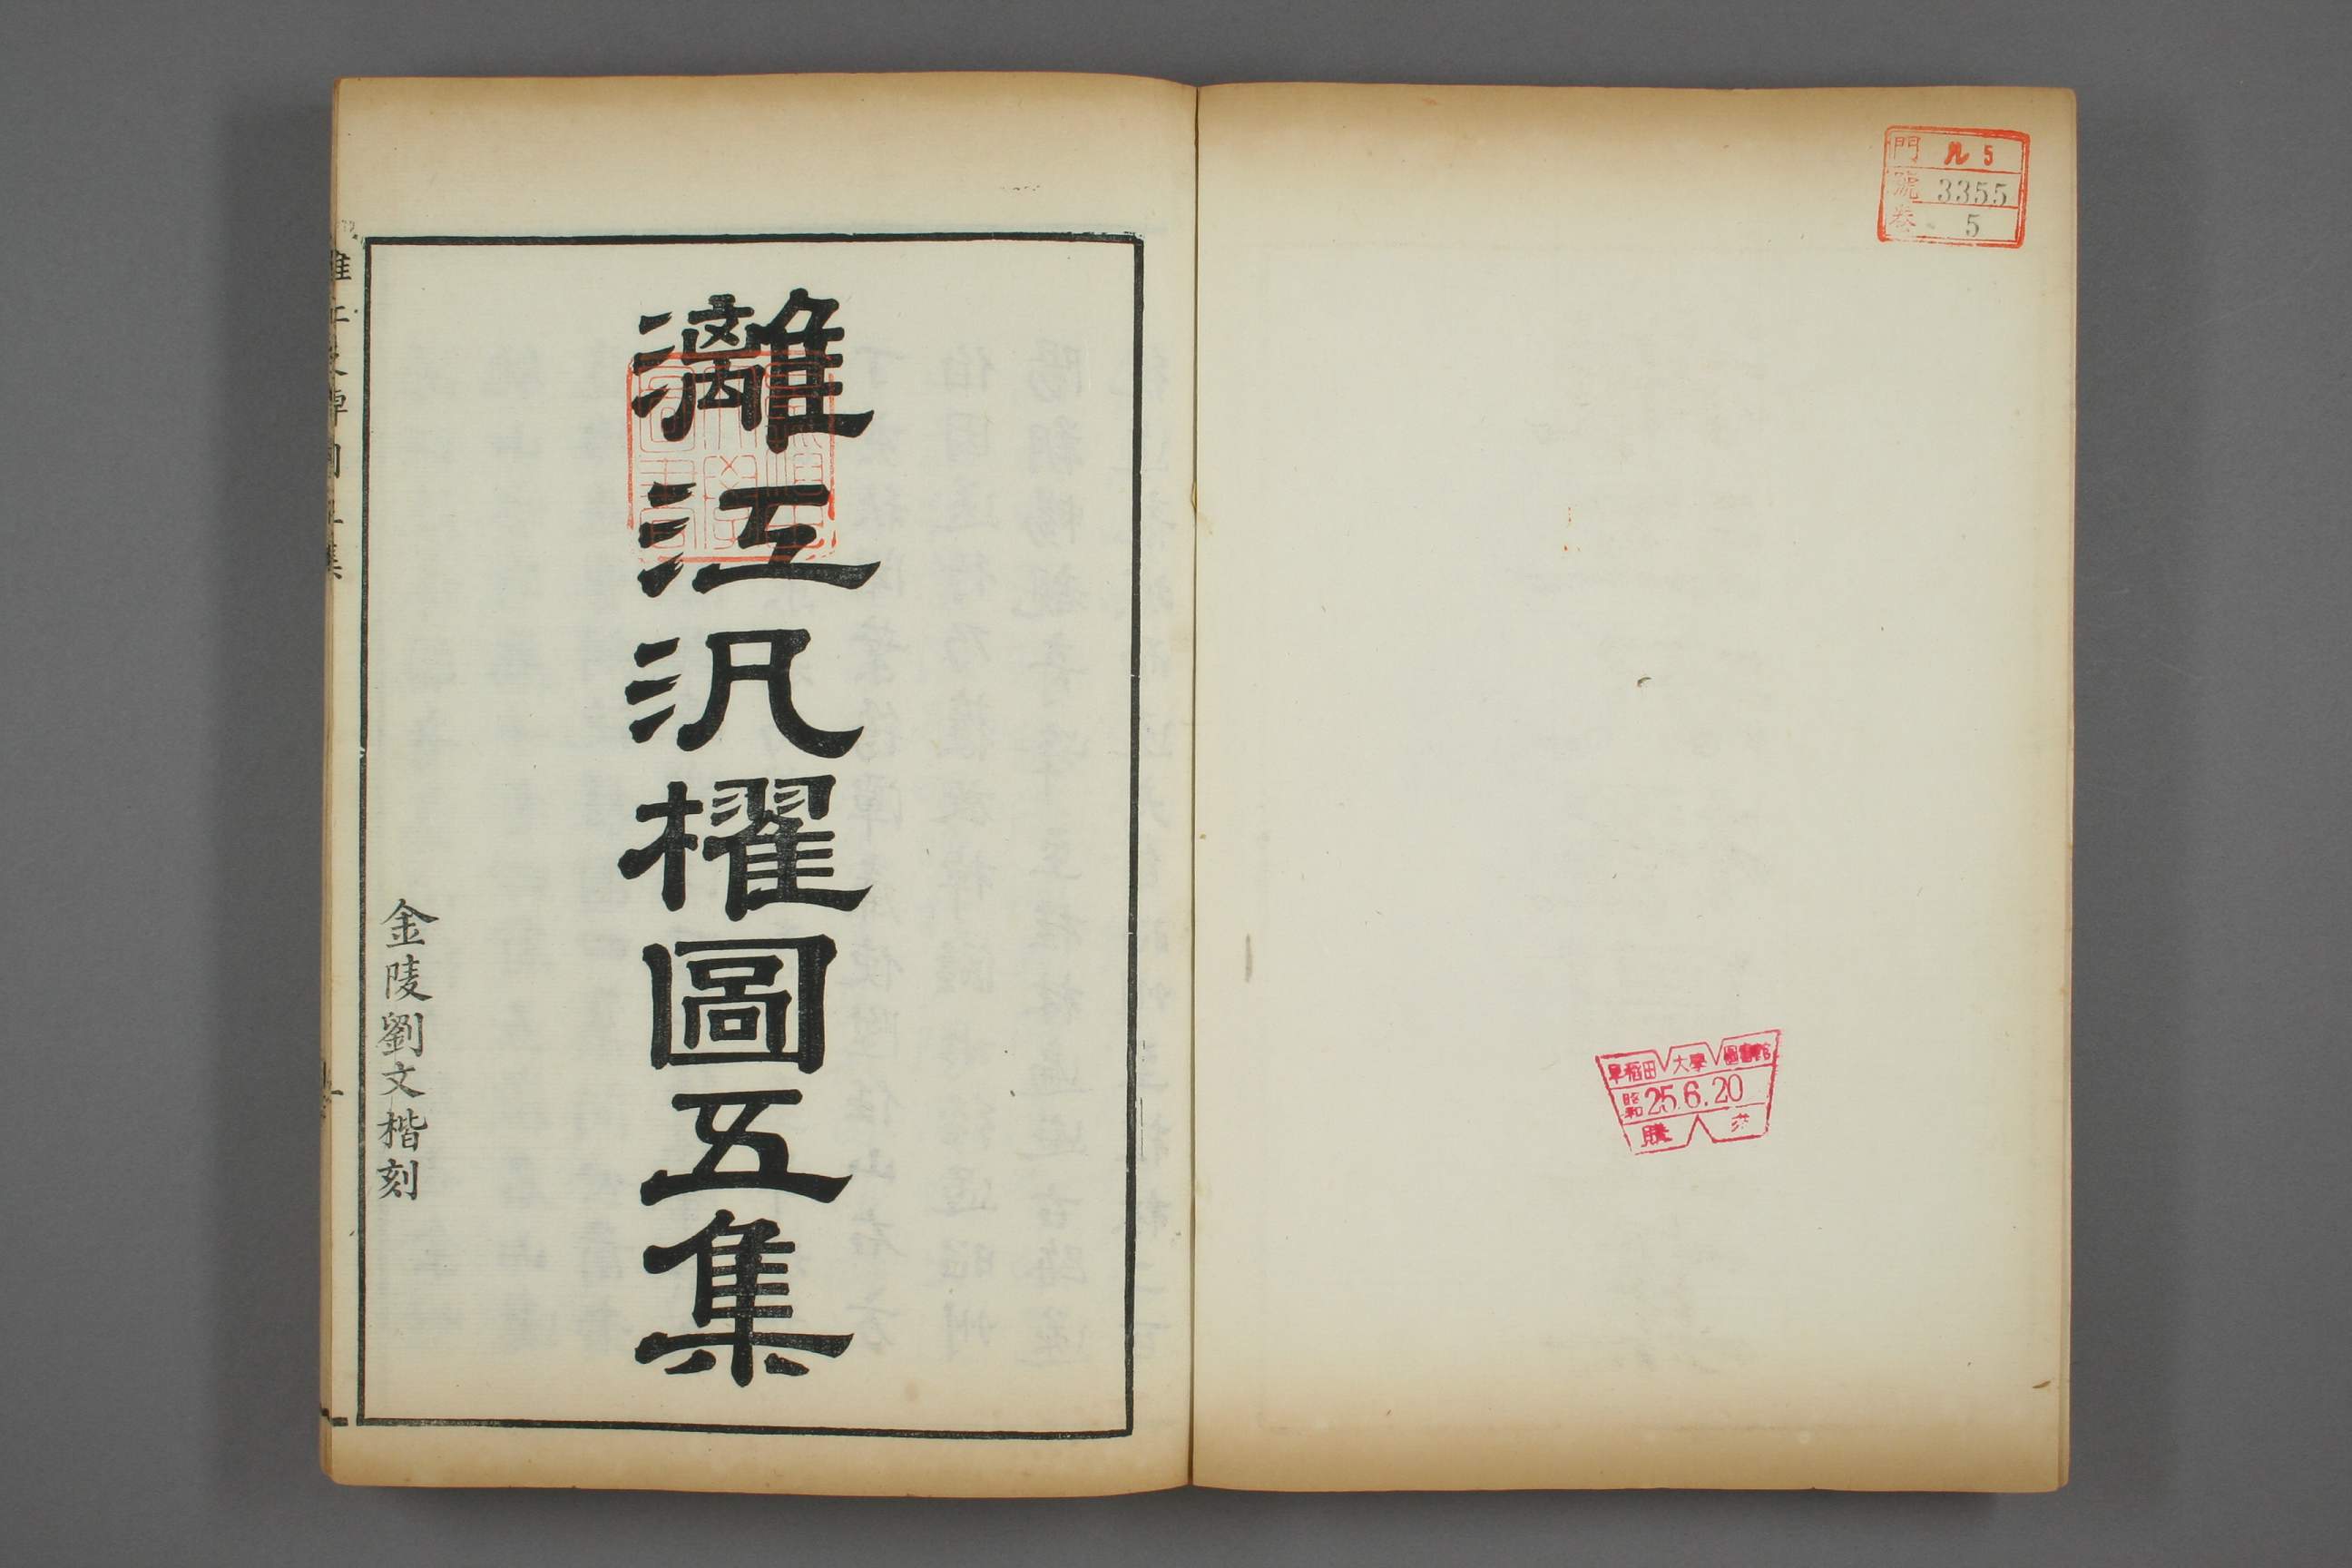 門 凡5
號 3355
卷 5
早稻田大學圖書館
昭和 25.6.20
購求
灕江汎櫂圖五集
金陵劉文楷刻